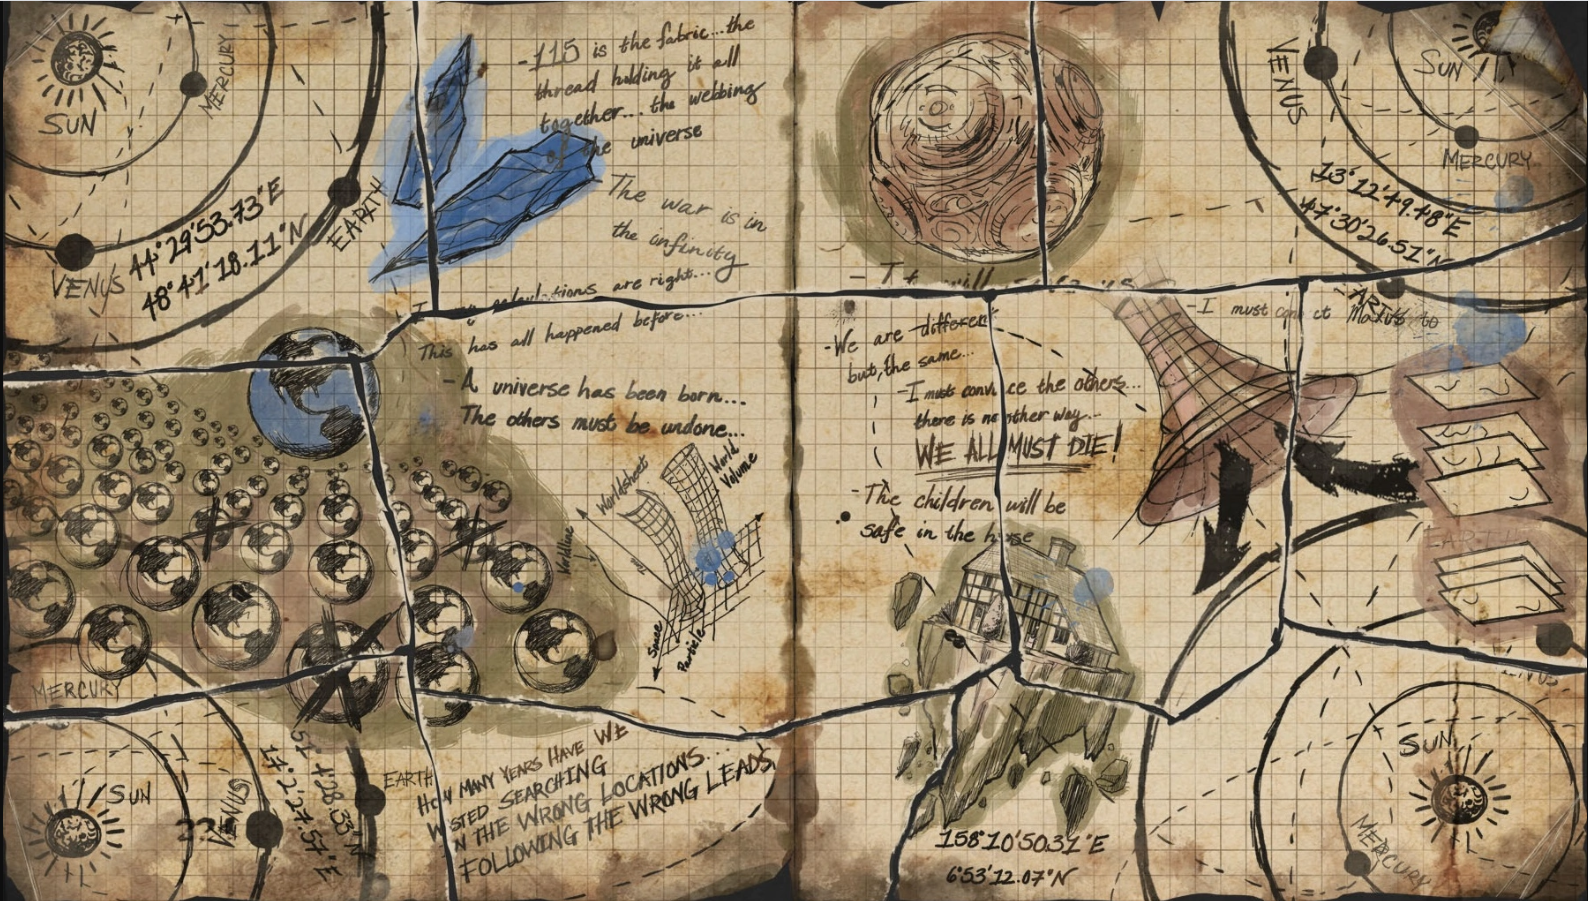 SUN
MERCURY
VENUS
EARTH
44°29'53.73"E
48°41'18.11"N
-115 is the fabric...the
thread holding it all
together... the webbing
of the universe
The war is in
the infinity
are right...
This has all happened before...
-A universe has been born...
The others must be undone...
Worldsheet
World
Volume
Worldline
Space
Particle
MERCURY
SUN
VENUS
EARTH
51°4'28.33"N
17°2'27.57"E
HOW MANY YEARS HAVE WE
WASTED SEARCHING
IN THE WRONG LOCATIONS...
FOLLOWING THE WRONG LEADS
VENUS
SUN
MERCURY
13°12'49.48"E
47°30'26.51"N
-We are different
but, the same...
-I must convince the others...
there is no other way...
WE ALL MUST DIE!
-The children will be
safe in the house
-I must
to
EARTH
158°10'50.31"E
6°53'12.07"N
SUN
MERCURY